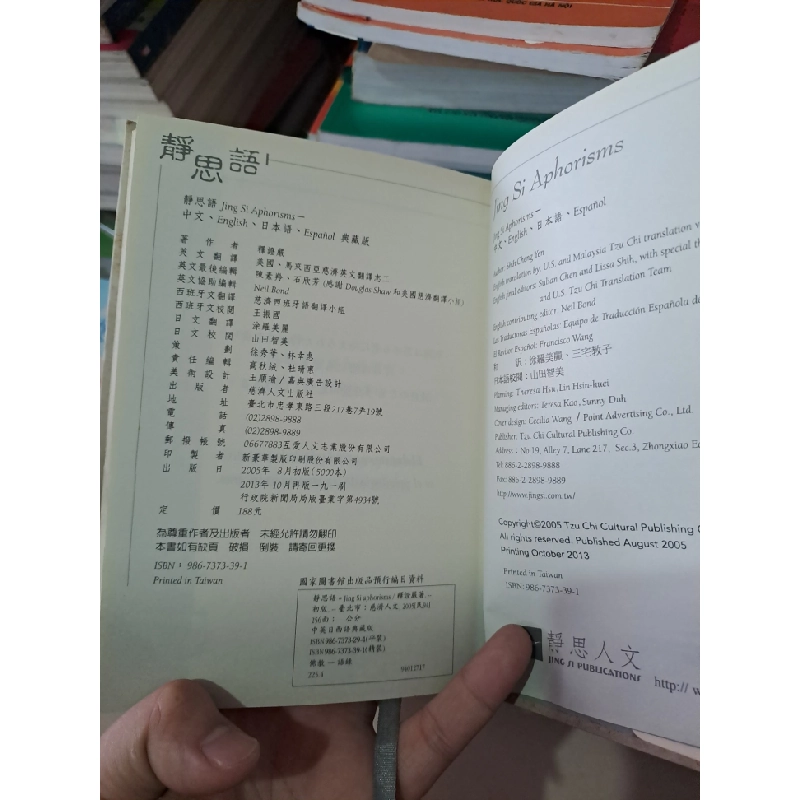 靜思語
靜思語 Jing Si Aphorisms—
中文、English、日本語、Español 典藏版
著作者 釋證嚴
英文翻譯 美國、馬來西亞慈濟英文翻譯志工
英文最後編輯 陳素婷、石欣芳 (感謝 Douglas Shaw 和美國慈濟翻譯小組)
英文協助編輯 Neil Bond
西班牙文翻譯 慈濟西班牙語翻譯小組
西班牙文校閱 王振國
日文翻譯 涂羅美麗
日文校閱 山田智美
策劃
責任編輯
美術設計
出版者 慈濟人文出版社
地址 臺北市忠孝東路三段217巷7弄19號
電話 (02)2898-9888
傳真 (02)2898-9889
郵撥帳號 06677883互愛人文志業股份有限公司
印製者 新豪華製版印刷股份有限公司
出版日 2005年 8月初版(5000本)
2013年10月再版一九一刷
行政院新聞局局版臺業字第4934號
定價 188元
為尊重作者及出版者 未經允許請勿翻印
本書如有缺頁 破損 倒裝 請寄回更換
ISBN: 986-7373-39-1
Printed in Taiwan
國家圖書館出版品預行編目資料
靜思語 = Jing Si aphorisms / 釋證嚴著. --
初版.-- 臺北市: 慈濟人文
256面: 公分
中英日西語典藏版
ISBN 986-7373-39-1(精裝)
225.4
Jing Si Aphorisms
Jing Si Aphorisms—
中文、English、日本語、Español
English translation by: U.S. and Malaysia Tzu Chi translation v
English final editors: Suban Chen and Lissa Shih, with special th
and U.S. Tzu Chi Translation Team
English contributing editor: Neil Bond
Las Traductoras españolas: Equipo de Traducción Española de
El Revisor Español: Francisco Wang
日本語校閱: 山田智美
Planning: Theresa Hsu, Lin Hsin-huei
Managing editors: Teresa Kao, Sunny Duh
Cover design: Cecilia Wang / Point Advertising Co., Ltd.
Publisher: Tzu Chi Cultural Publishing Co.
Address: No 19, Alley 7, Lane 217, Sec.3, Zhongxiao Ea
Tel: 885-2-2898-9888
Fax: 885-2-2898-9889
http://www.jingsi.com.tw/
Copyright©2005 Tzu Chi Cultural Publishing C
All rights reserved. Published August 2005
Printing October 2013
Printed in Taiwan
ISBN: 986-7373-39-1
靜思人文
JING SI PUBLICATIONS
http:// w